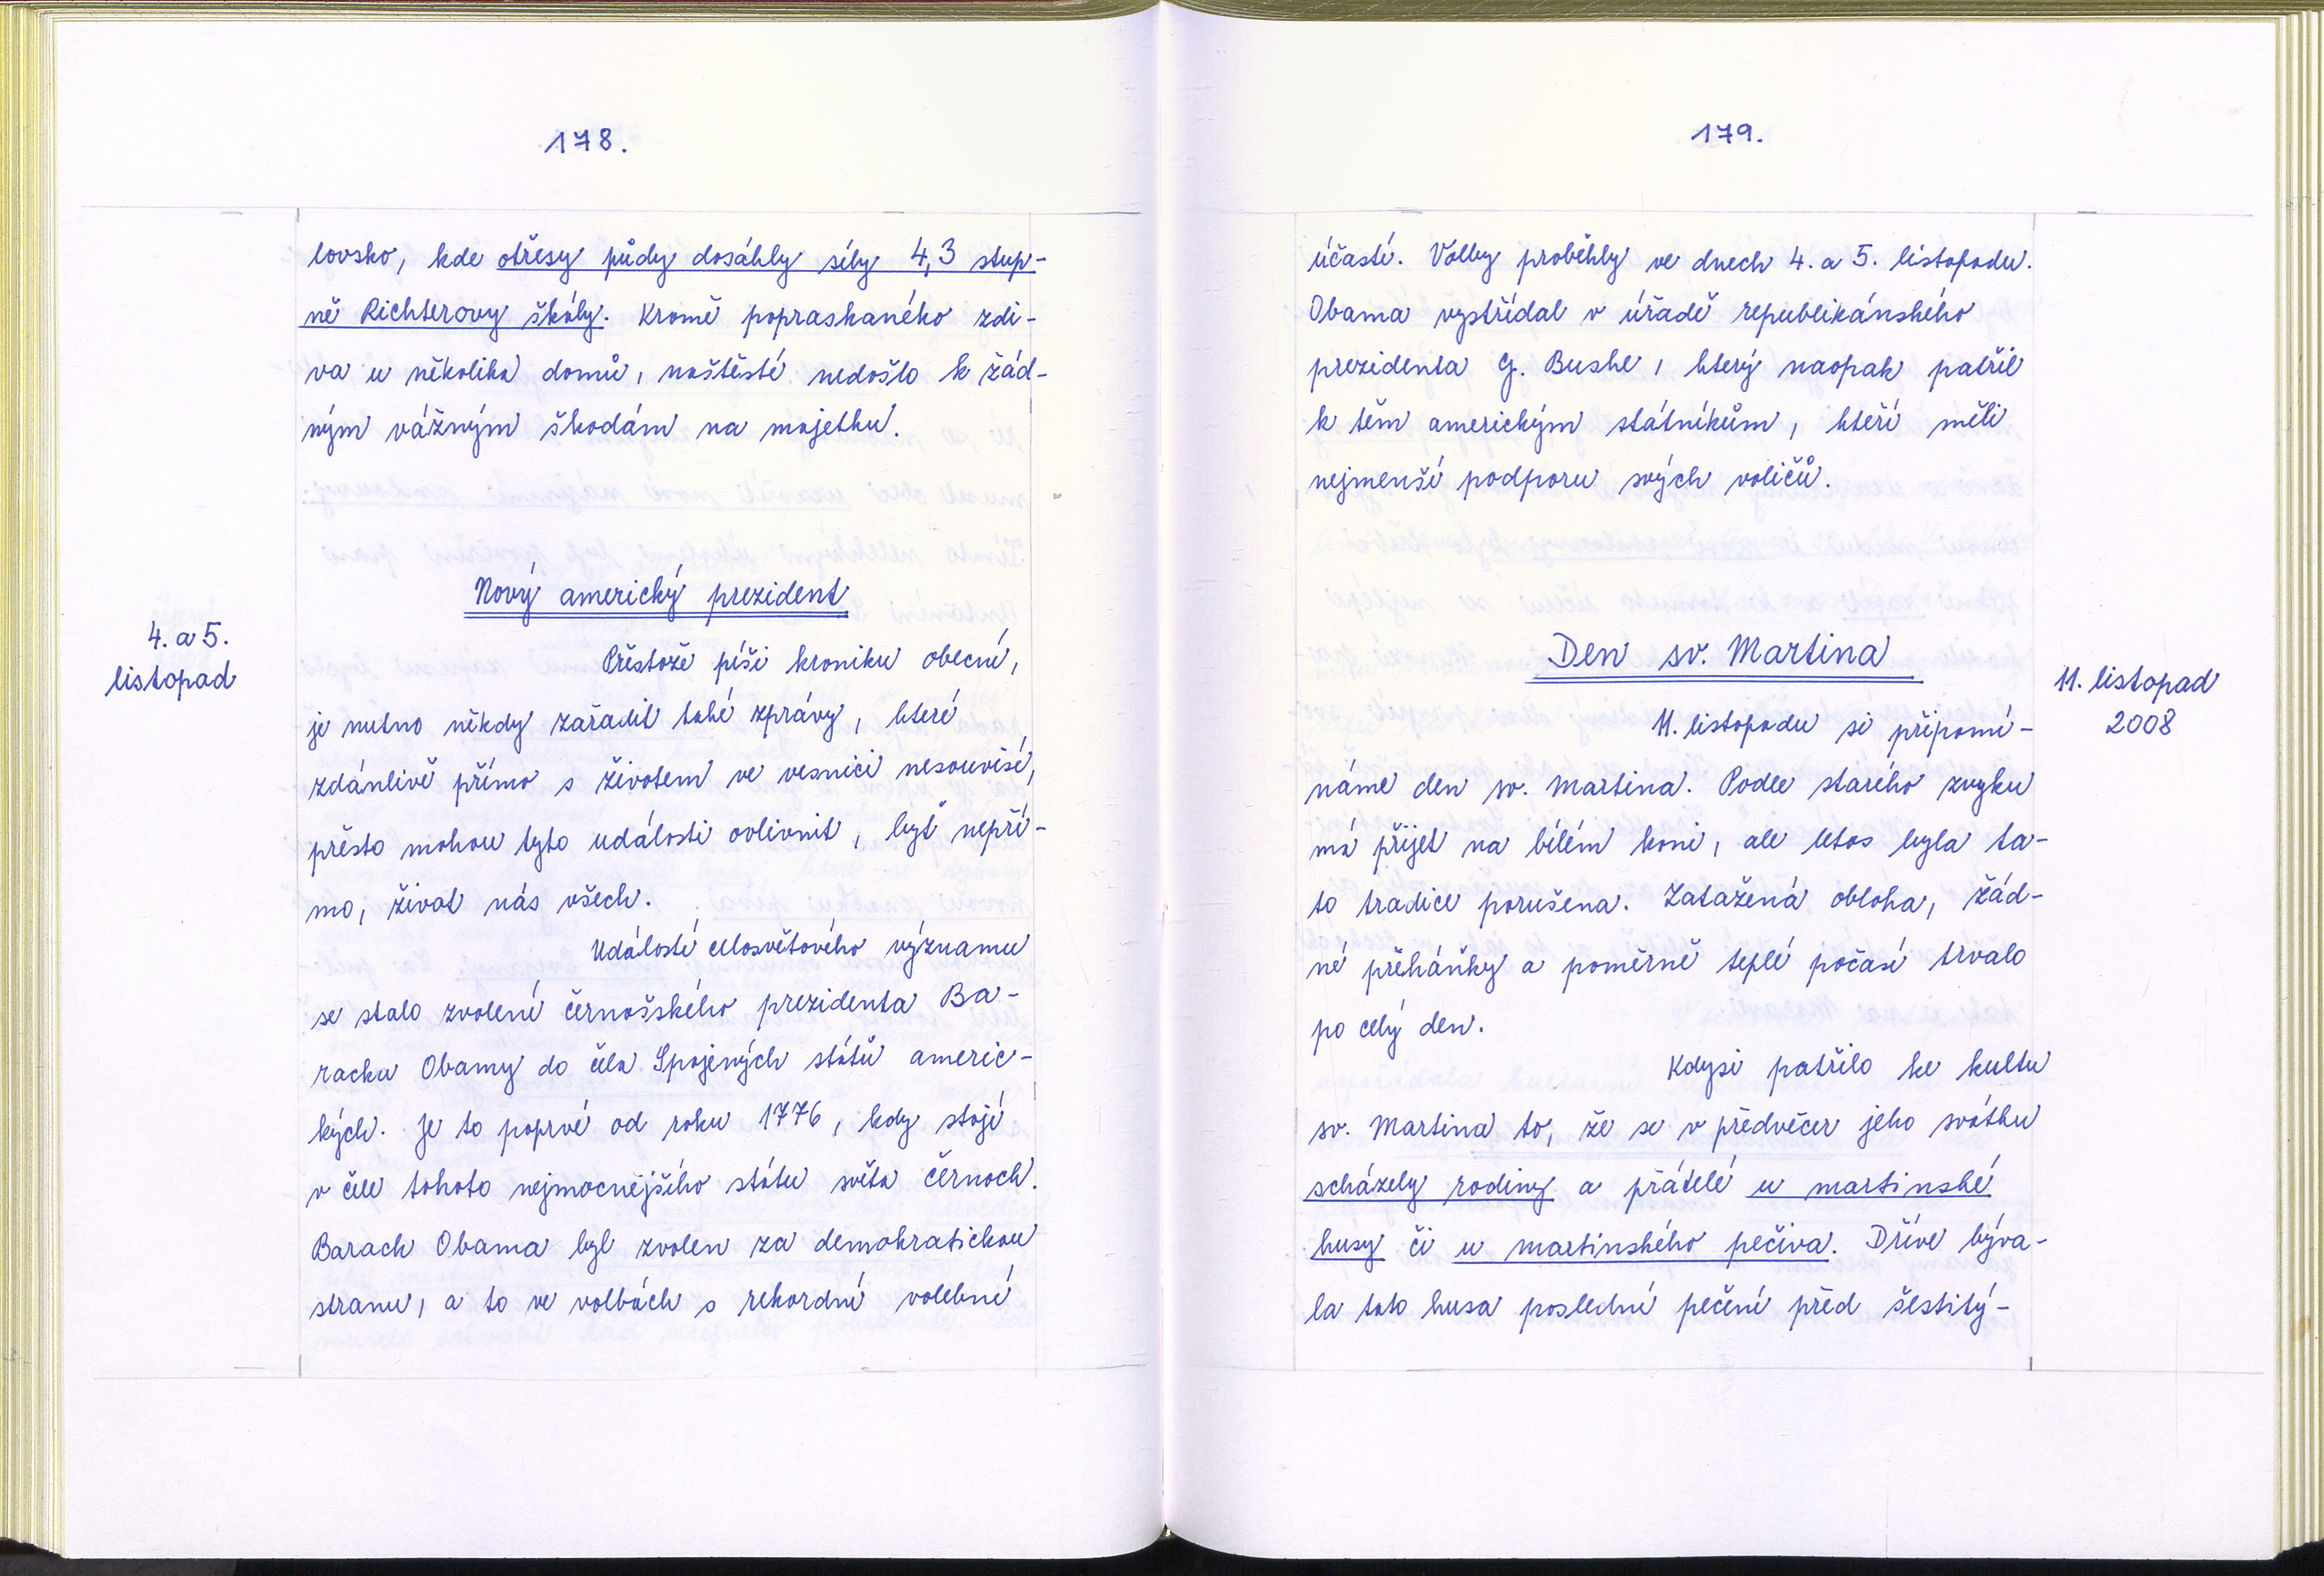 178.
lovsko, kde otřesy půdy dosáhly síly 4,3 stup-
ně Richterovy škály. Kromě popraskaného zdi-
va u několika domů, naštěstí nedošlo k žád-
ným vážným škodám na majetku.
Nový americký prezident
4. a 5.
listopad
Přestože píši kroniku obecní,
je nutno někdy zařadit také zprávy, které
zdánlivě přímo s životem ve vesnici nesouvisí,
přesto mohou tyto události ovlivnit, byť nepří-
mo, život nás všech.
Událostí celosvětového významu
se stalo zvolení černošského prezidenta Ba-
racka Obamy do čela Spojených států americ-
kých. Je to poprvé od roku 1776, kdy stojí
v čele tohoto nejmocnějšího státu světa černoch.
Barack Obama byl zvolen za demokratickou
stranu, a to ve volbách s rekordní volební
179.
účastí. Volby proběhly ve dnech 4. a 5. listopadu.
Obama vystřídal v úřadě republikánského
prezidenta G. Bushe, který naopak patřil
k těm americkým státníkům, kteří měli
nejmenší podporu svých voličů.
Den sv. Martina
11. listopad
2008
11. listopadu si připomí-
náme den sv. Martina. Podle starého zvyku
má přijet na bílém koni, ale letos byla ta-
to tradice porušena. Zatažená obloha, žád-
né přeháňky a poměrně teplé počasí trvalo
po celý den.
Kdysi patřilo ke kultu
sv. Martina to, že se v předvečer jeho svátku
scházely rodiny a přátelé u martinské
husy či u martinského pečiva. Dříve býva-
la tato husa poslední pečení před šestitý-